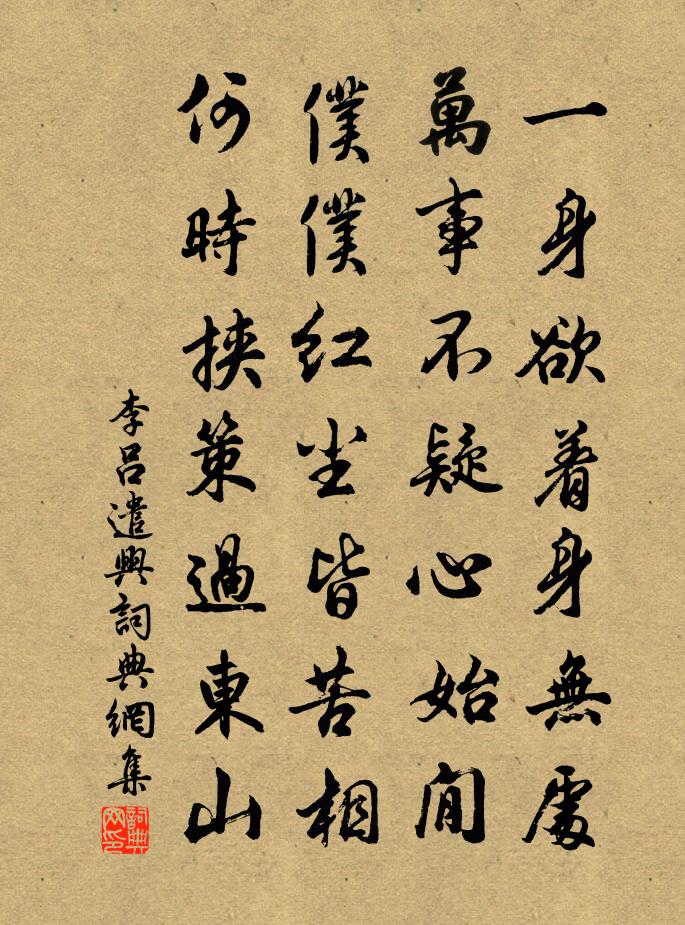 一身欲着身無處
萬事不疑心始閒
僕僕紅尘皆苦相
何時挾策過東山
李呂遣興詞典網集
詞典網印